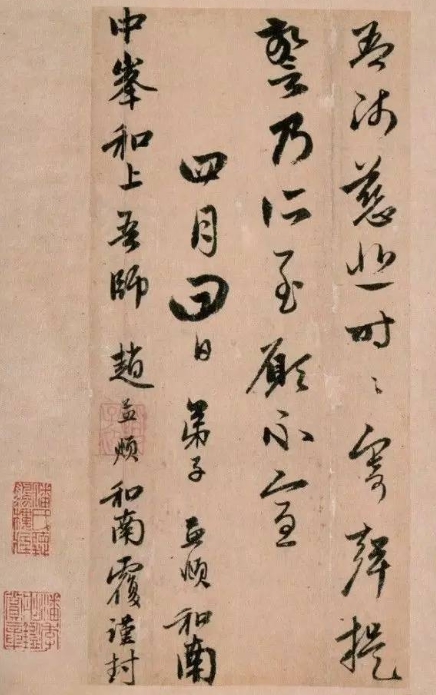 吾師慈悲時〻寄聲提
警乃所至願不宣
四月四日 弟子 孟頫 和南
中峯和上吾師 趙孟頫和南覆謹封